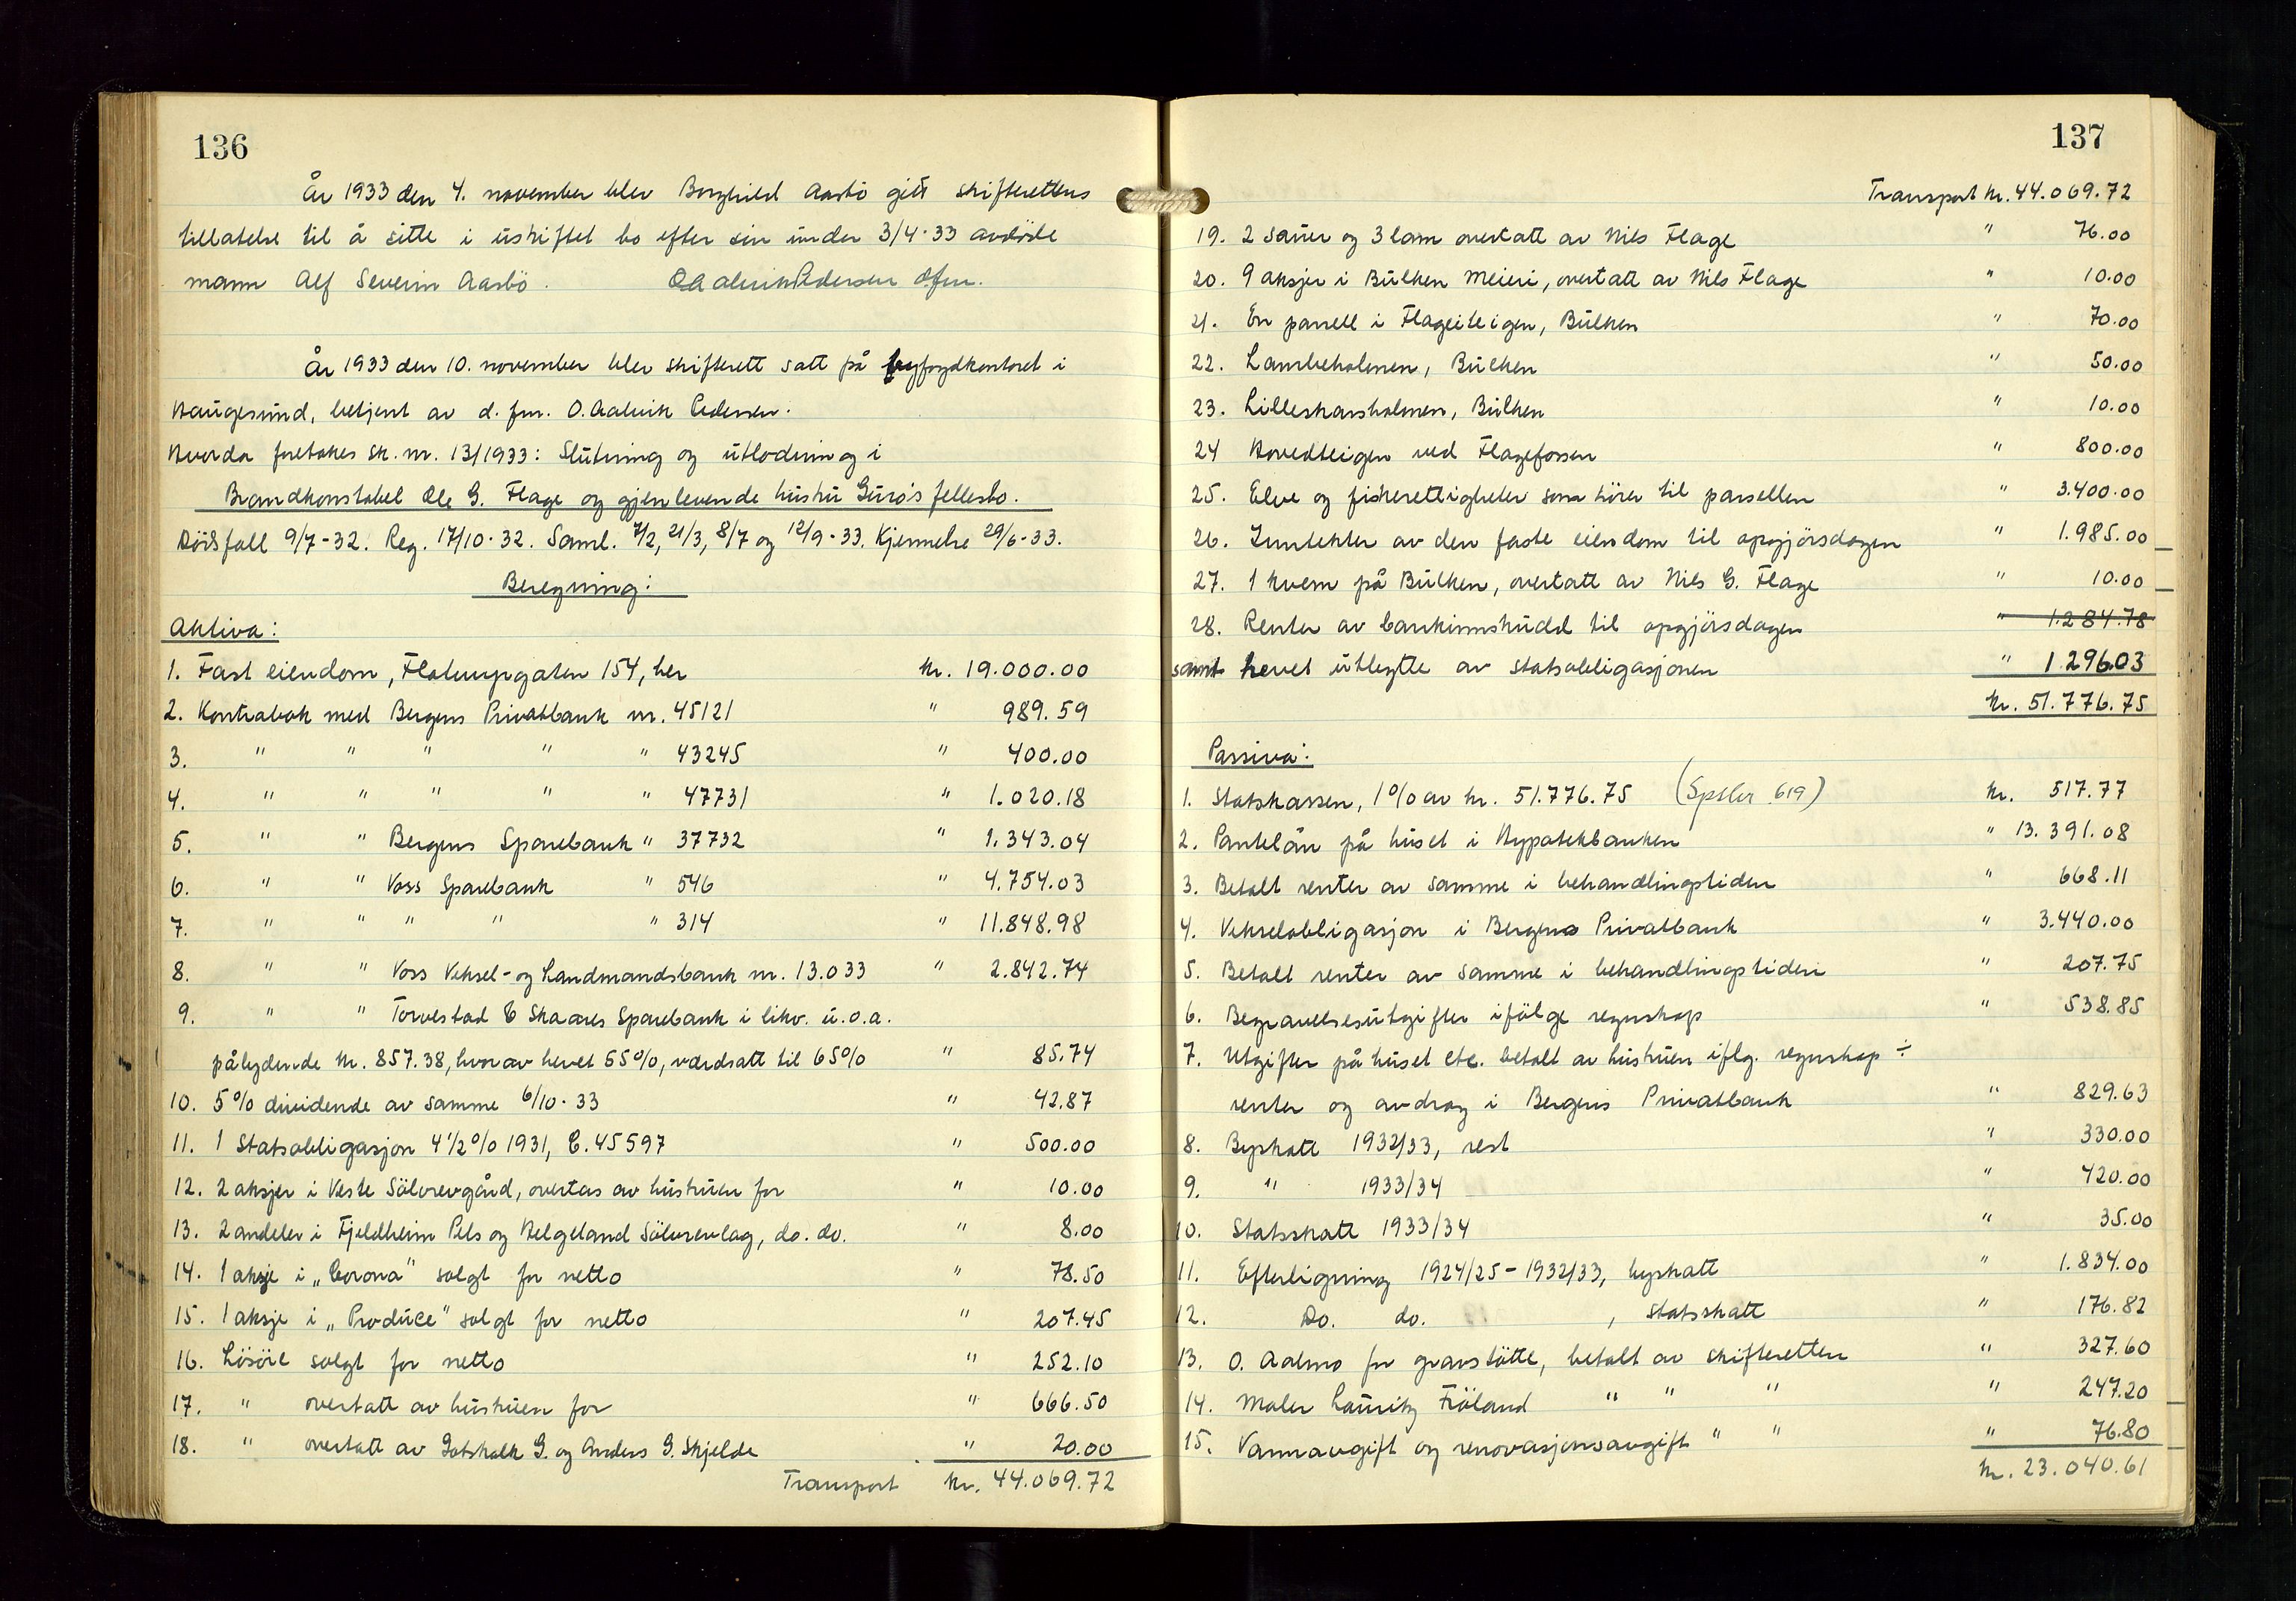 136
År 1933 den 4. november blev Borghild Aasbö gitt skifterettens
tillatelse til å sitte i uskiftet bo efter sin under 3/4-33 avdöde
mann Alf Severin Aasbö. O Aalvik Pedersen dfm.
År 1933 den 10. november blev skifterett satt på byfogdkontoret i
Haugesund, betjent av d. fm. O. Aalvik Pedersen.
Hvorda foretokes sk. nr. 13/1933: Slutning og utlodning i
Brandkonstabel Ole G. Flage og gjenlevende hustru Guro's fellesbo.
Dödsfall 9/7-32. Reg. 17/10-32. Saml. 7/2, 21/3, 8/7 og 12/9-33. Kjennelse 29/6-33.
Beregning:
Aktiva:
1. Fast eiendom, Flotmyrgaten 154, her kr. 19.000.00
2. Kontrabok med Bergens Privatbank nr. 45121 " 989.59
3. " " " " " 43245 " 400.00
4. " " " " " 47731 " 1.020.18
5. " " Bergens Sparebank " 37732 " 1.343.04
6. " " Voss Sparebank " 546 " 4.754.03
7. " " " " " 314 " 11.848.98
8. " " Voss Veksel- og Landmandsbank nr. 13.033 " 2.842.74
9. " " Torvestad & Skaares Sparebank i likv. u.o.a.
pålydende kr. 857.38, hvorav hevet 55%, verdsatt til 65% " 85.74
10. 5% dividende av samme 6/10-33 " 42.87
11. 1 Statsobligasjon 4 1/2% 1931, C. 45597 " 500.00
12. 2 aksjer i Veste Sölvrevgård, overtas av hustruen for " 10.00
13. 2 andeler i Fjeldheim Pels og Helgeland Sölvrevlag, do. do. " 8.00
14. 1 aksje i „Corona" solgt for netto " 78.50
15. 1 aksje i „Produce" solgt for netto " 207.45
16. Lösöre solgt for netto " 252.10
17. " overtatt av hustruen for " 666.50
18. " overtatt av Gotskalk G. og Anders G. Skjelde " 20.00
Transport kr. 44.069.72
137
Transport kr. 44.069.72
19. 2 sauer og 3 lam overtatt av Nils Flage " 76.00
20. 9 aksjer i Bulken Meieri, overtatt av Nils Flage " 10.00
21. En parsell i Flageteigen, Bulken " 70.00
22. Lambeholmen, Bulken " 50.00
23. Lilleskarsholmen, Bulken " 10.00
24 Hovedteigen ved Flagefossen " 800.00
25. Elve og fiskerettigheter som hörer til parsellen " 3.400.00
26. Inntekter av den faste eiendom til opgjörsdagen " 1.985.00
27. 1 kvern på Bulken, overtatt av Nils G. Flage " 10.00
28. Renter av bankinnskudd til opgjörsdagen " 1.284.78
samt hevet utbytte av statsobligasjonen " 1.296.03
kr. 51.776.75
Passiva:
1. Statskassen, 1% av kr. 51.776.75 (Spsbr 619) kr. 517.77
2. Pantelån på huset i Hypotekbanken " 13.391.08
3. Betalt renter av samme i behandlingstiden " 668.11
4. Vekselobligasjon i Bergens Privatbank " 3.440.00
5. Betalt renter av samme i behandlingstiden " 207.75
6. Begravelsesutgifter ifölge regnskap " 538.85
7. Utgifter på huset etc. betalt av hustruen iflg. regnskap ÷
renter og avdrag i Bergens Privatbank " 829.63
8. Byskatt 1932/33, rest " 330.00
9. " 1933/34 " 420.00
10. Statsskatt 1933/34 " 35.00
11. Efterligning 1924/25 - 1932/33, byskatt " 1.834.00
12. Do. do. , statsskatt " 176.82
13. O. Aalmo for gravstötte, betalt av skifteretten " 327.60
14. Maler Lauritz Fröland " " " " 247.20
15. Vannavgift og renovasjonsavgift " " " 76.80
kr. 23.040.61